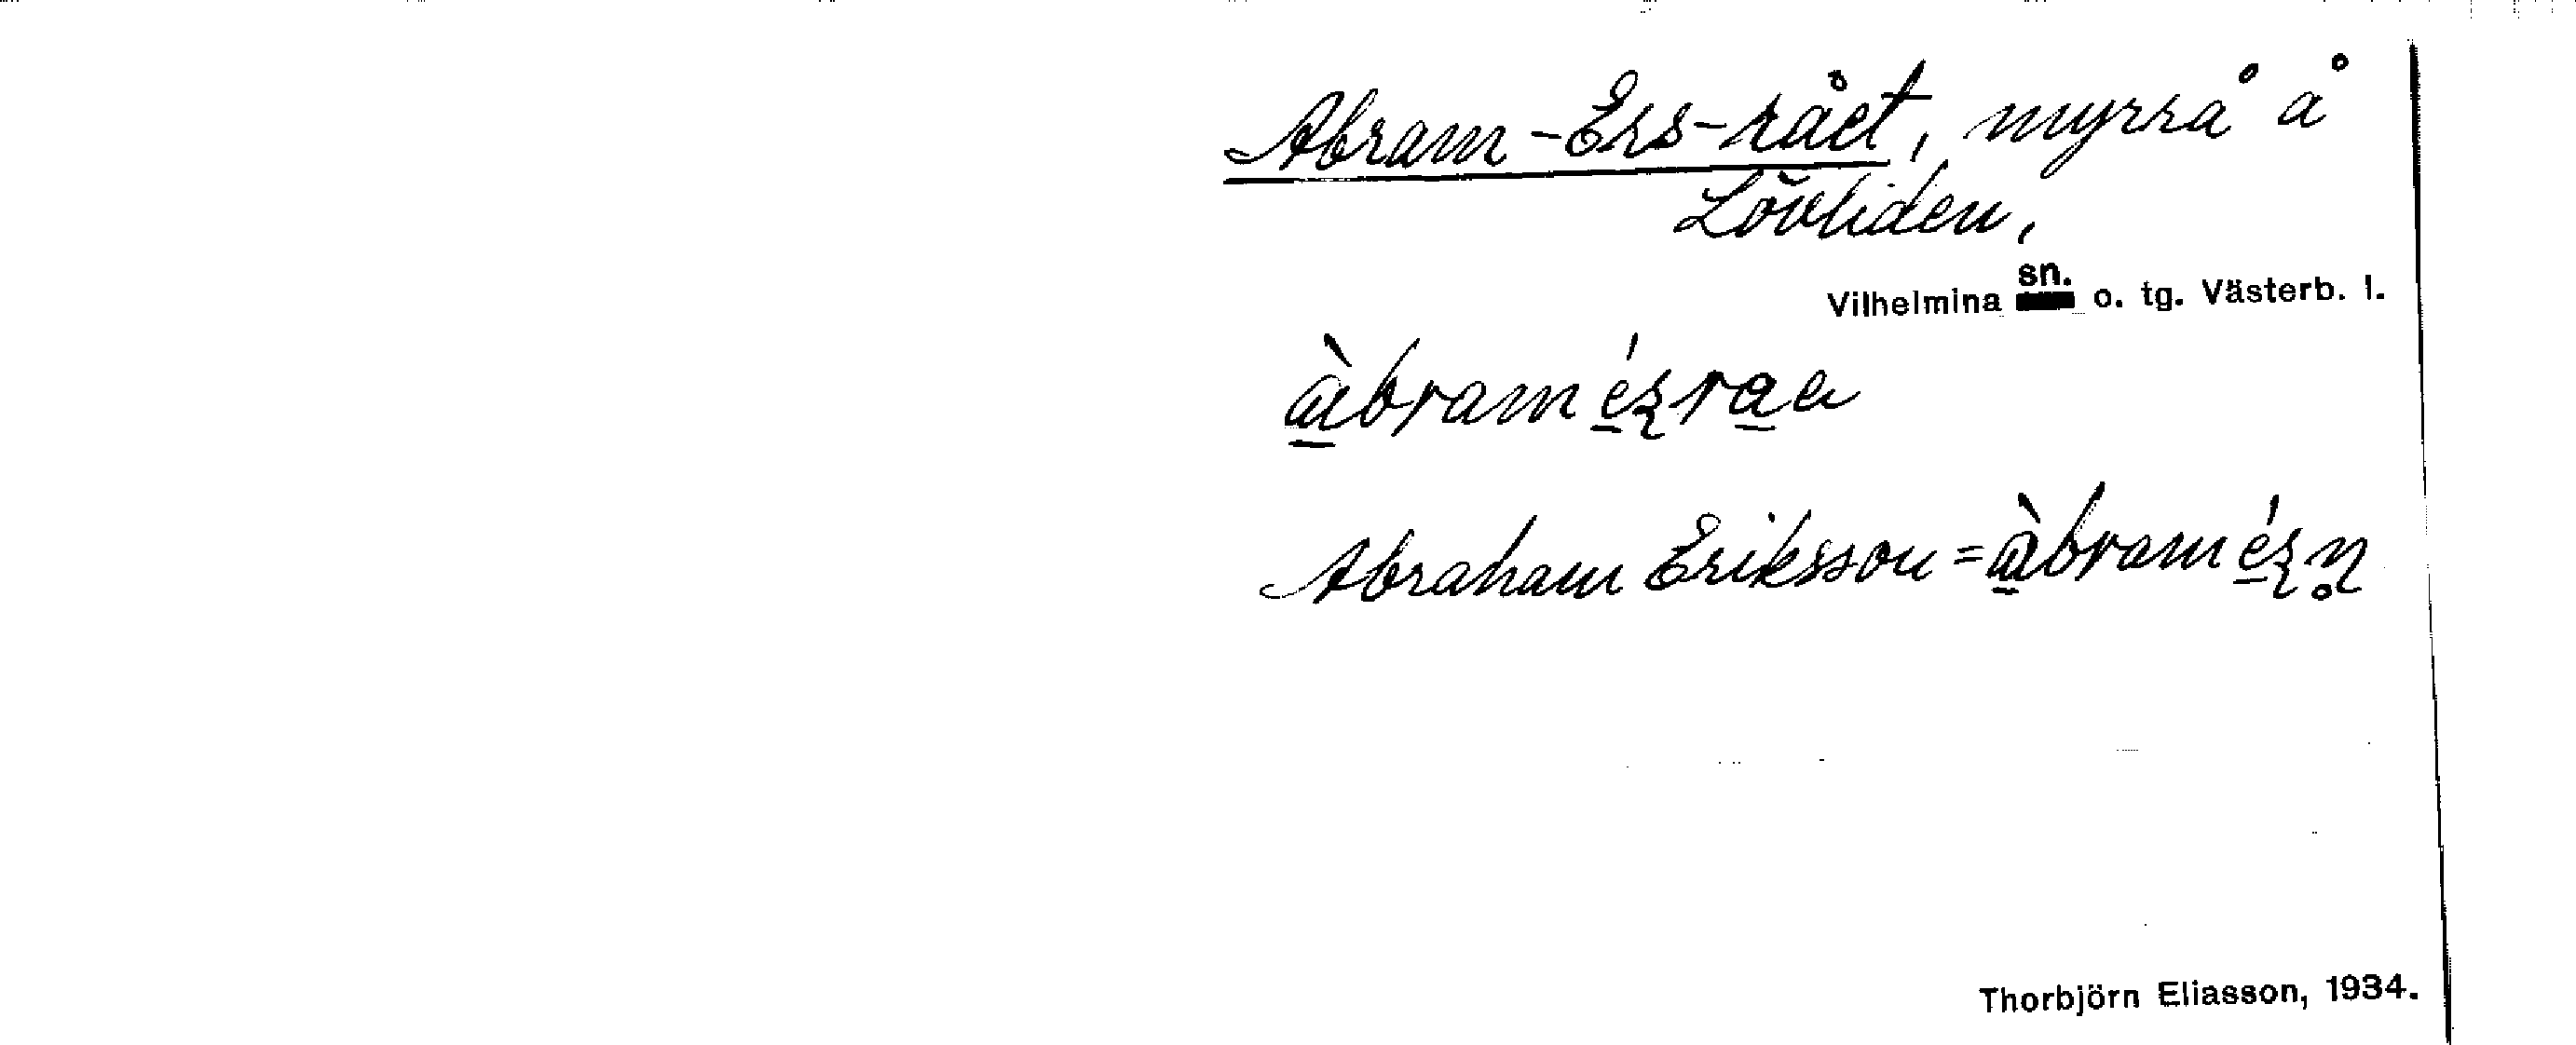 Abram-Ers-rået, myrrå å
Lövliden,
Vilhelmina sn. o. tg. Västerb. l.
à̲bramé̲ʂra̲a
Abraham Eriksson = à̲bramé̲ʂn̥
Thorbjörn Eliasson, 1934.